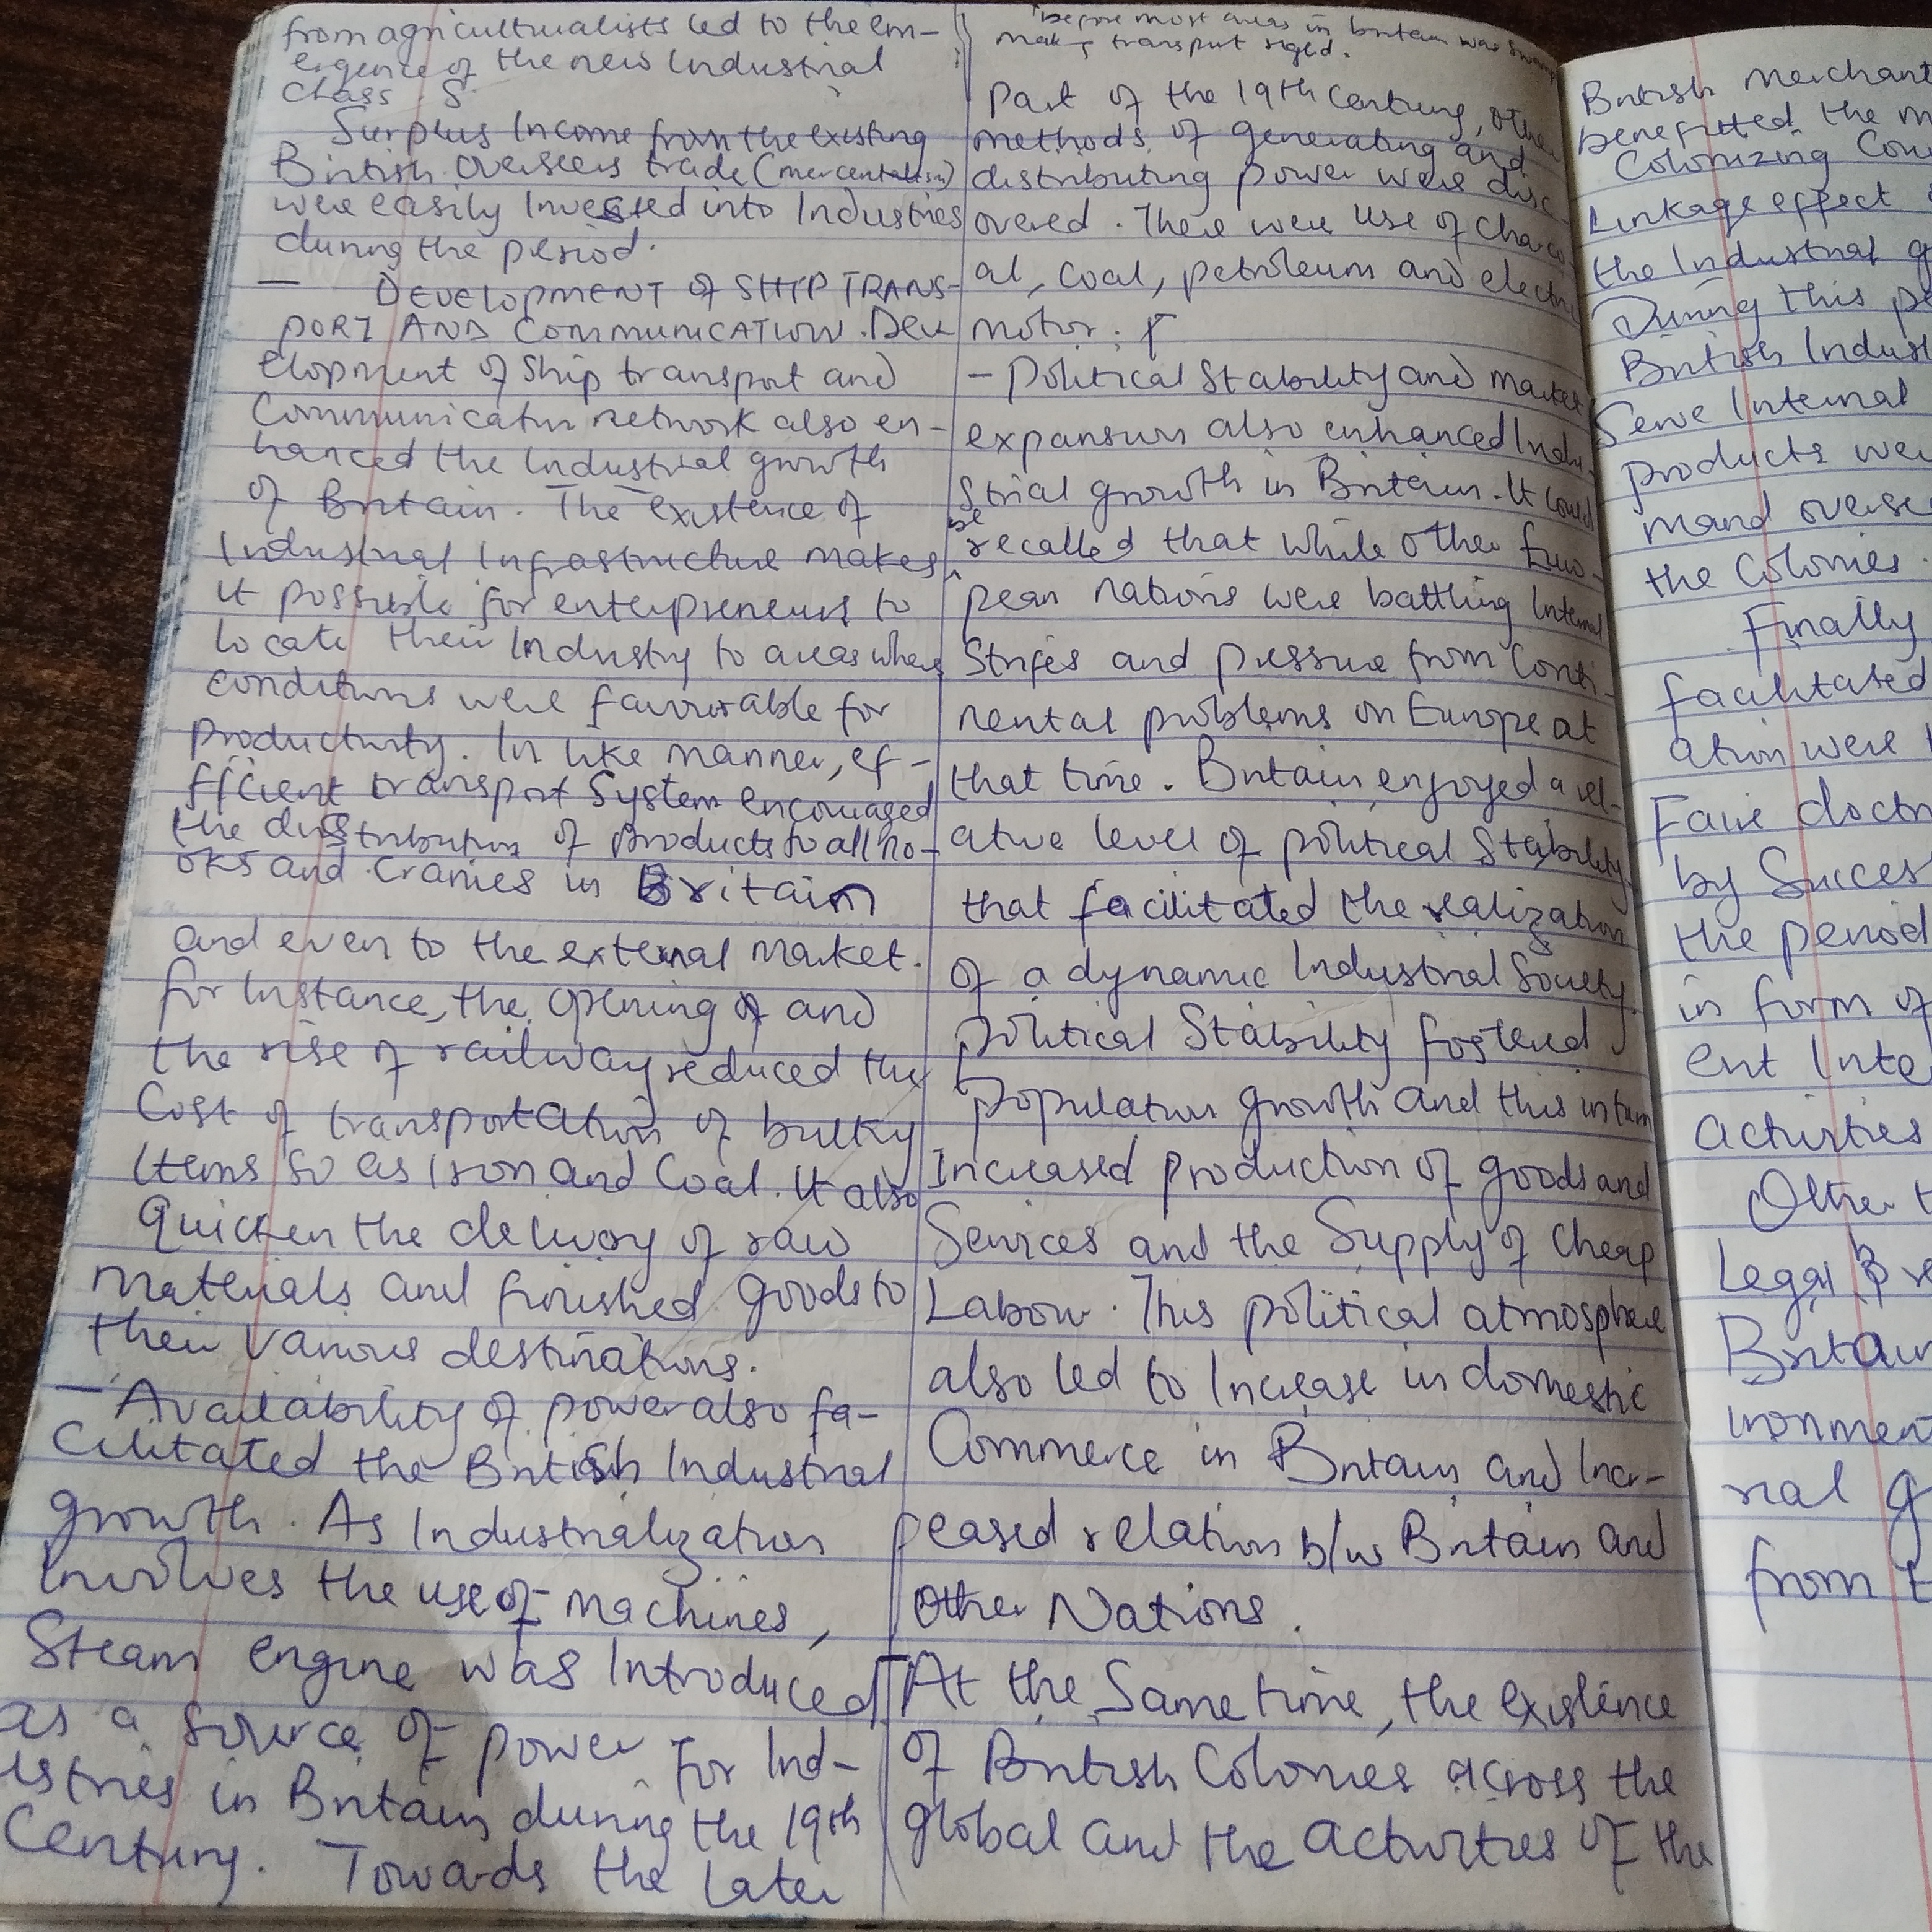 from agriculturalists led to the em-
ergence of the new Industrial
Class.
Surplus Income from the existing
British overseers trade (mercentalism)
were easily Invested into Industries
during the period.
— DEVELOPMENT OF SHIP TRANS-
PORT AND COMMUNICATION. Dev
elopment of Ship transport and
Communication network also en-
hanced the Industrial growth
of Britain. The existence of
Industrial Infrastructure makes
it possible for enterpreneurs to
locate their Industry to areas where
conditions were favourable for
productivity. In like manner, ef-
fficient transport System encouraged
the distribution of products to all no-
oks and cranies in Britain
and even to the external market.
for Instance, the opening of and
the rise of railway reduced the
Cost of transportation of bulky
Items so as Iron and Coal. It also
Quicken the delivory of raw
materials and finished goods to
their various destinations.
— Availability of power also fa-
cilitated the British Industrial
growth. As Industrialization
Involves the use of machines,
Steam engine was Introduced
as a source of power for Ind-
ustries in Britain during the 19th
Century. Towards the later
before most areas in britain was swamp
making transport rigid.
Part of the 19th Century, other
methods of generating and
distributing power were disc-
overed. There were use of charco
al, coal, petroleum and electri
motor.
- Political Stability and market
expansion also enhanced Indu-
strial growth in Britain. It could
be recalled that while other Euro-
pean nations were battling Internal
Strifes and pressure from Conti-
nental problems on Europe at
that time. Britain enjoyed a rel-
ative level of political Stability
that facilitated the realization
of a dynamic Industrial Society.
Political Stability fostered
population growth and this in turn
Increased production of goods and
Services and the Supply of cheap
Labour. This political atmosphere
also led to Increase in domestic
Commerce in Britain and Incr-
eased relation b/w Britain and
other Nations.
At the Same time, the existence
of British Colonies across the
global and the activities of the
British merchant
benefitted the m
Colonizing Cou
Linkage effect
the Industrial g
During this pe
British Indust
Serve Internal
products wer
mand overse
the Colonies.
Finally
facilitated
ation were
Faire doctr
by Succes
the period
in form of
ent Inte
activities
Other t
Legal Br
Britain
ironmen
rial g
from t